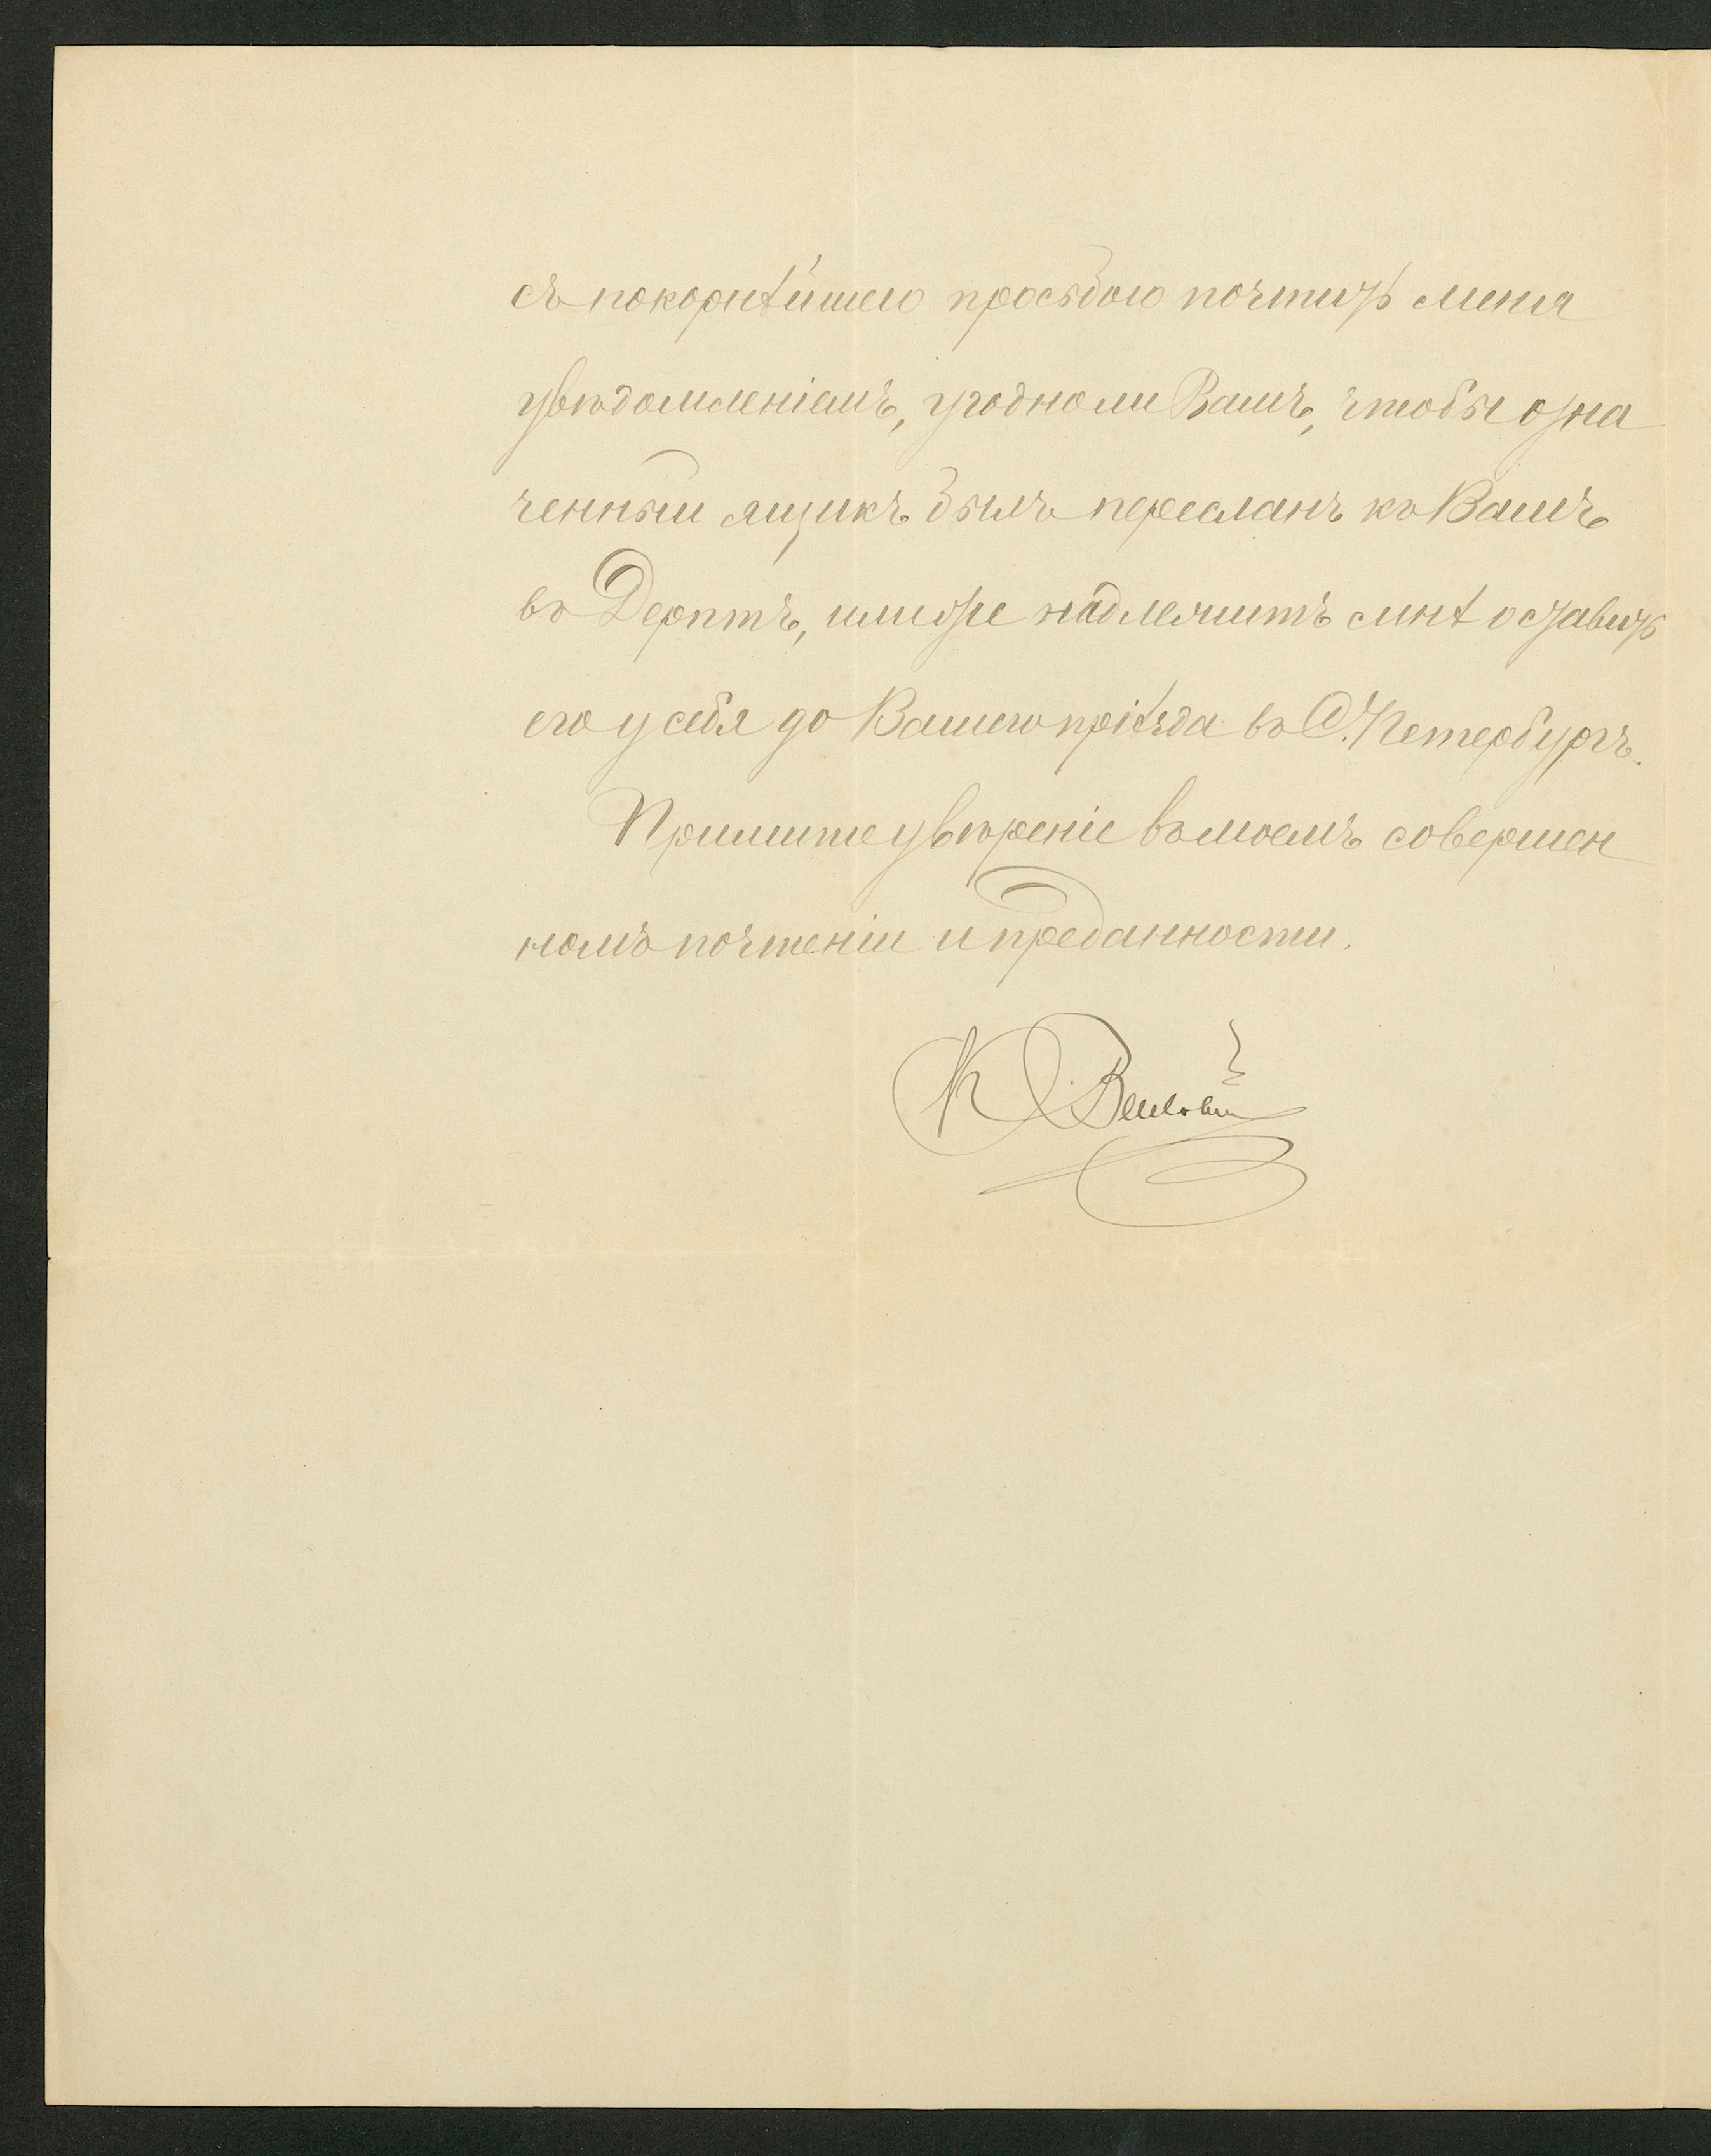 съ покорнѣйшею просьбою почтить меня
увѣдомленіемъ, угодно ли Вамъ, чтобы озна
ченный ящикъ былъ пересланъ къ Вамъ
въ Дерптъ, или же надлежитъ мнѣ оставить
его у себя до Вашего пріѣзда въ С. Петербургъ.
Примите увѣреніе въ моемъ совершен
номъ почтеніи и преданности.
К.